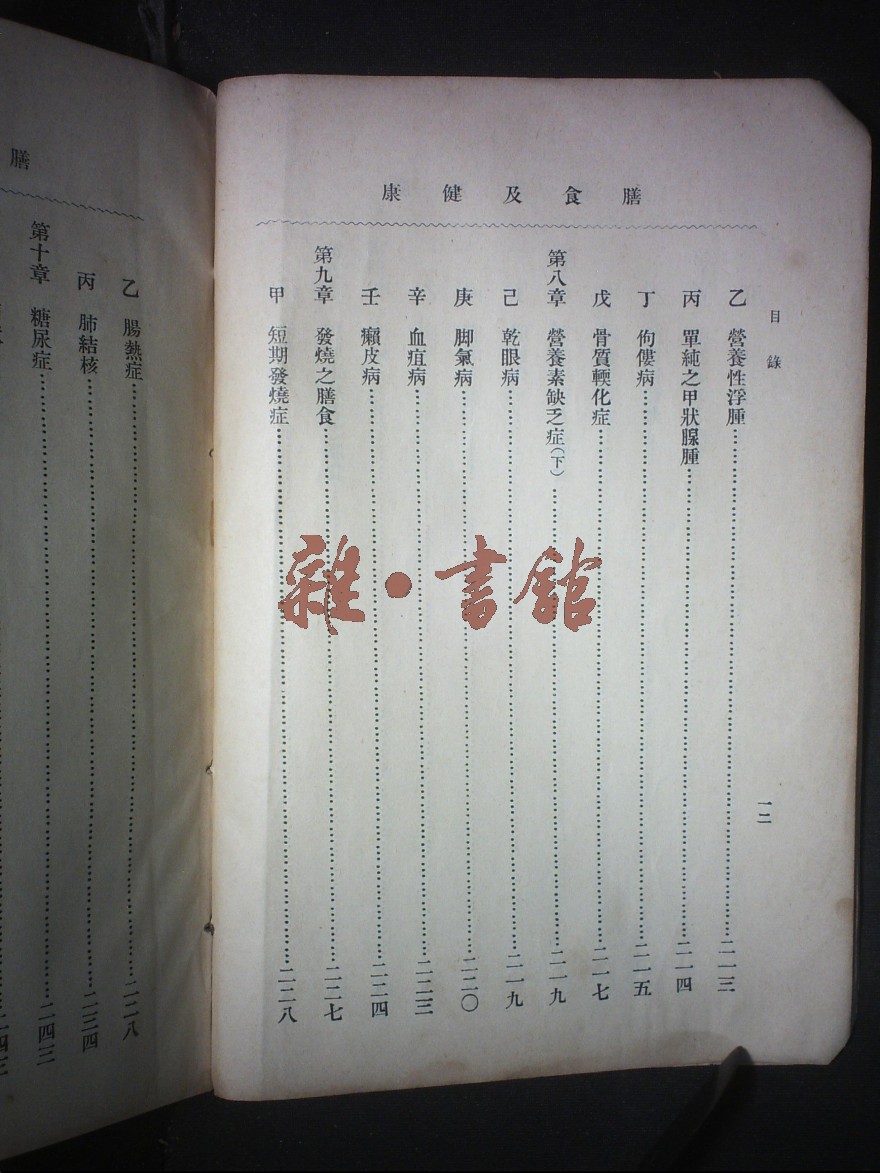 康健及食膳
目錄
一二
乙 營養性浮腫……二一三
丙 單純之甲狀腺腫……二一四
丁 佝僂病……二一五
戊 骨質輭化症……二一七
第八章 營養素缺乏症(下)……二一九
己 乾眼病……二一九
庚 脚氣病……二二〇
辛 血疽病……二二三
壬 癩皮病……二二四
第九章 發燒之膳食……二二七
甲 短期發燒症……二二八
膳
乙 腸熱症……二二八
丙 肺結核……二三四
第十章 糖尿症……二四三
雜·書館